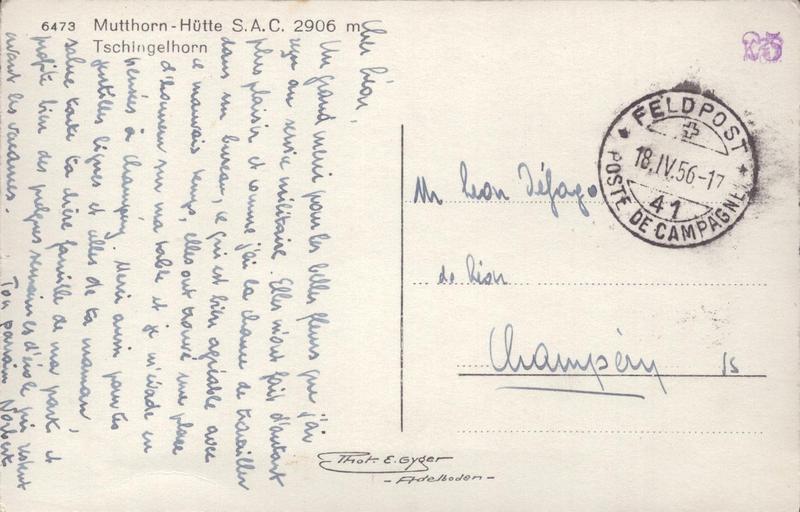 6473 Mutthorn-Hütte S.A.C. 2906 m
Tschingelhorn
Cher Léon,
Un grand merci pour les belles fleurs que j'ai
reçu au service militaire. Elles m'ont fait d'autant
plus plaisir et comme j'ai la chance de travailler
dans un bureau, ce qui est bien agréable avec
ce mauvais temps, elles ont trouvé une place
d'honneur sur ma table et je m'évade en
pensées à Champéry. Merci aussi pour tes
gentilles lignes et celles de ta maman,
salue toute ta chère famille de ma part et
profite bien des quelques semaines d'école qui restent
avant les vacances.
Ton parrain Norbert
Mr Léon Défago
de Léon
Champéry Vs
FELDPOST
18.IV.56-17
41
POSTE DE CAMPAGNE
Phot. E. Gyger
- Adelboden -